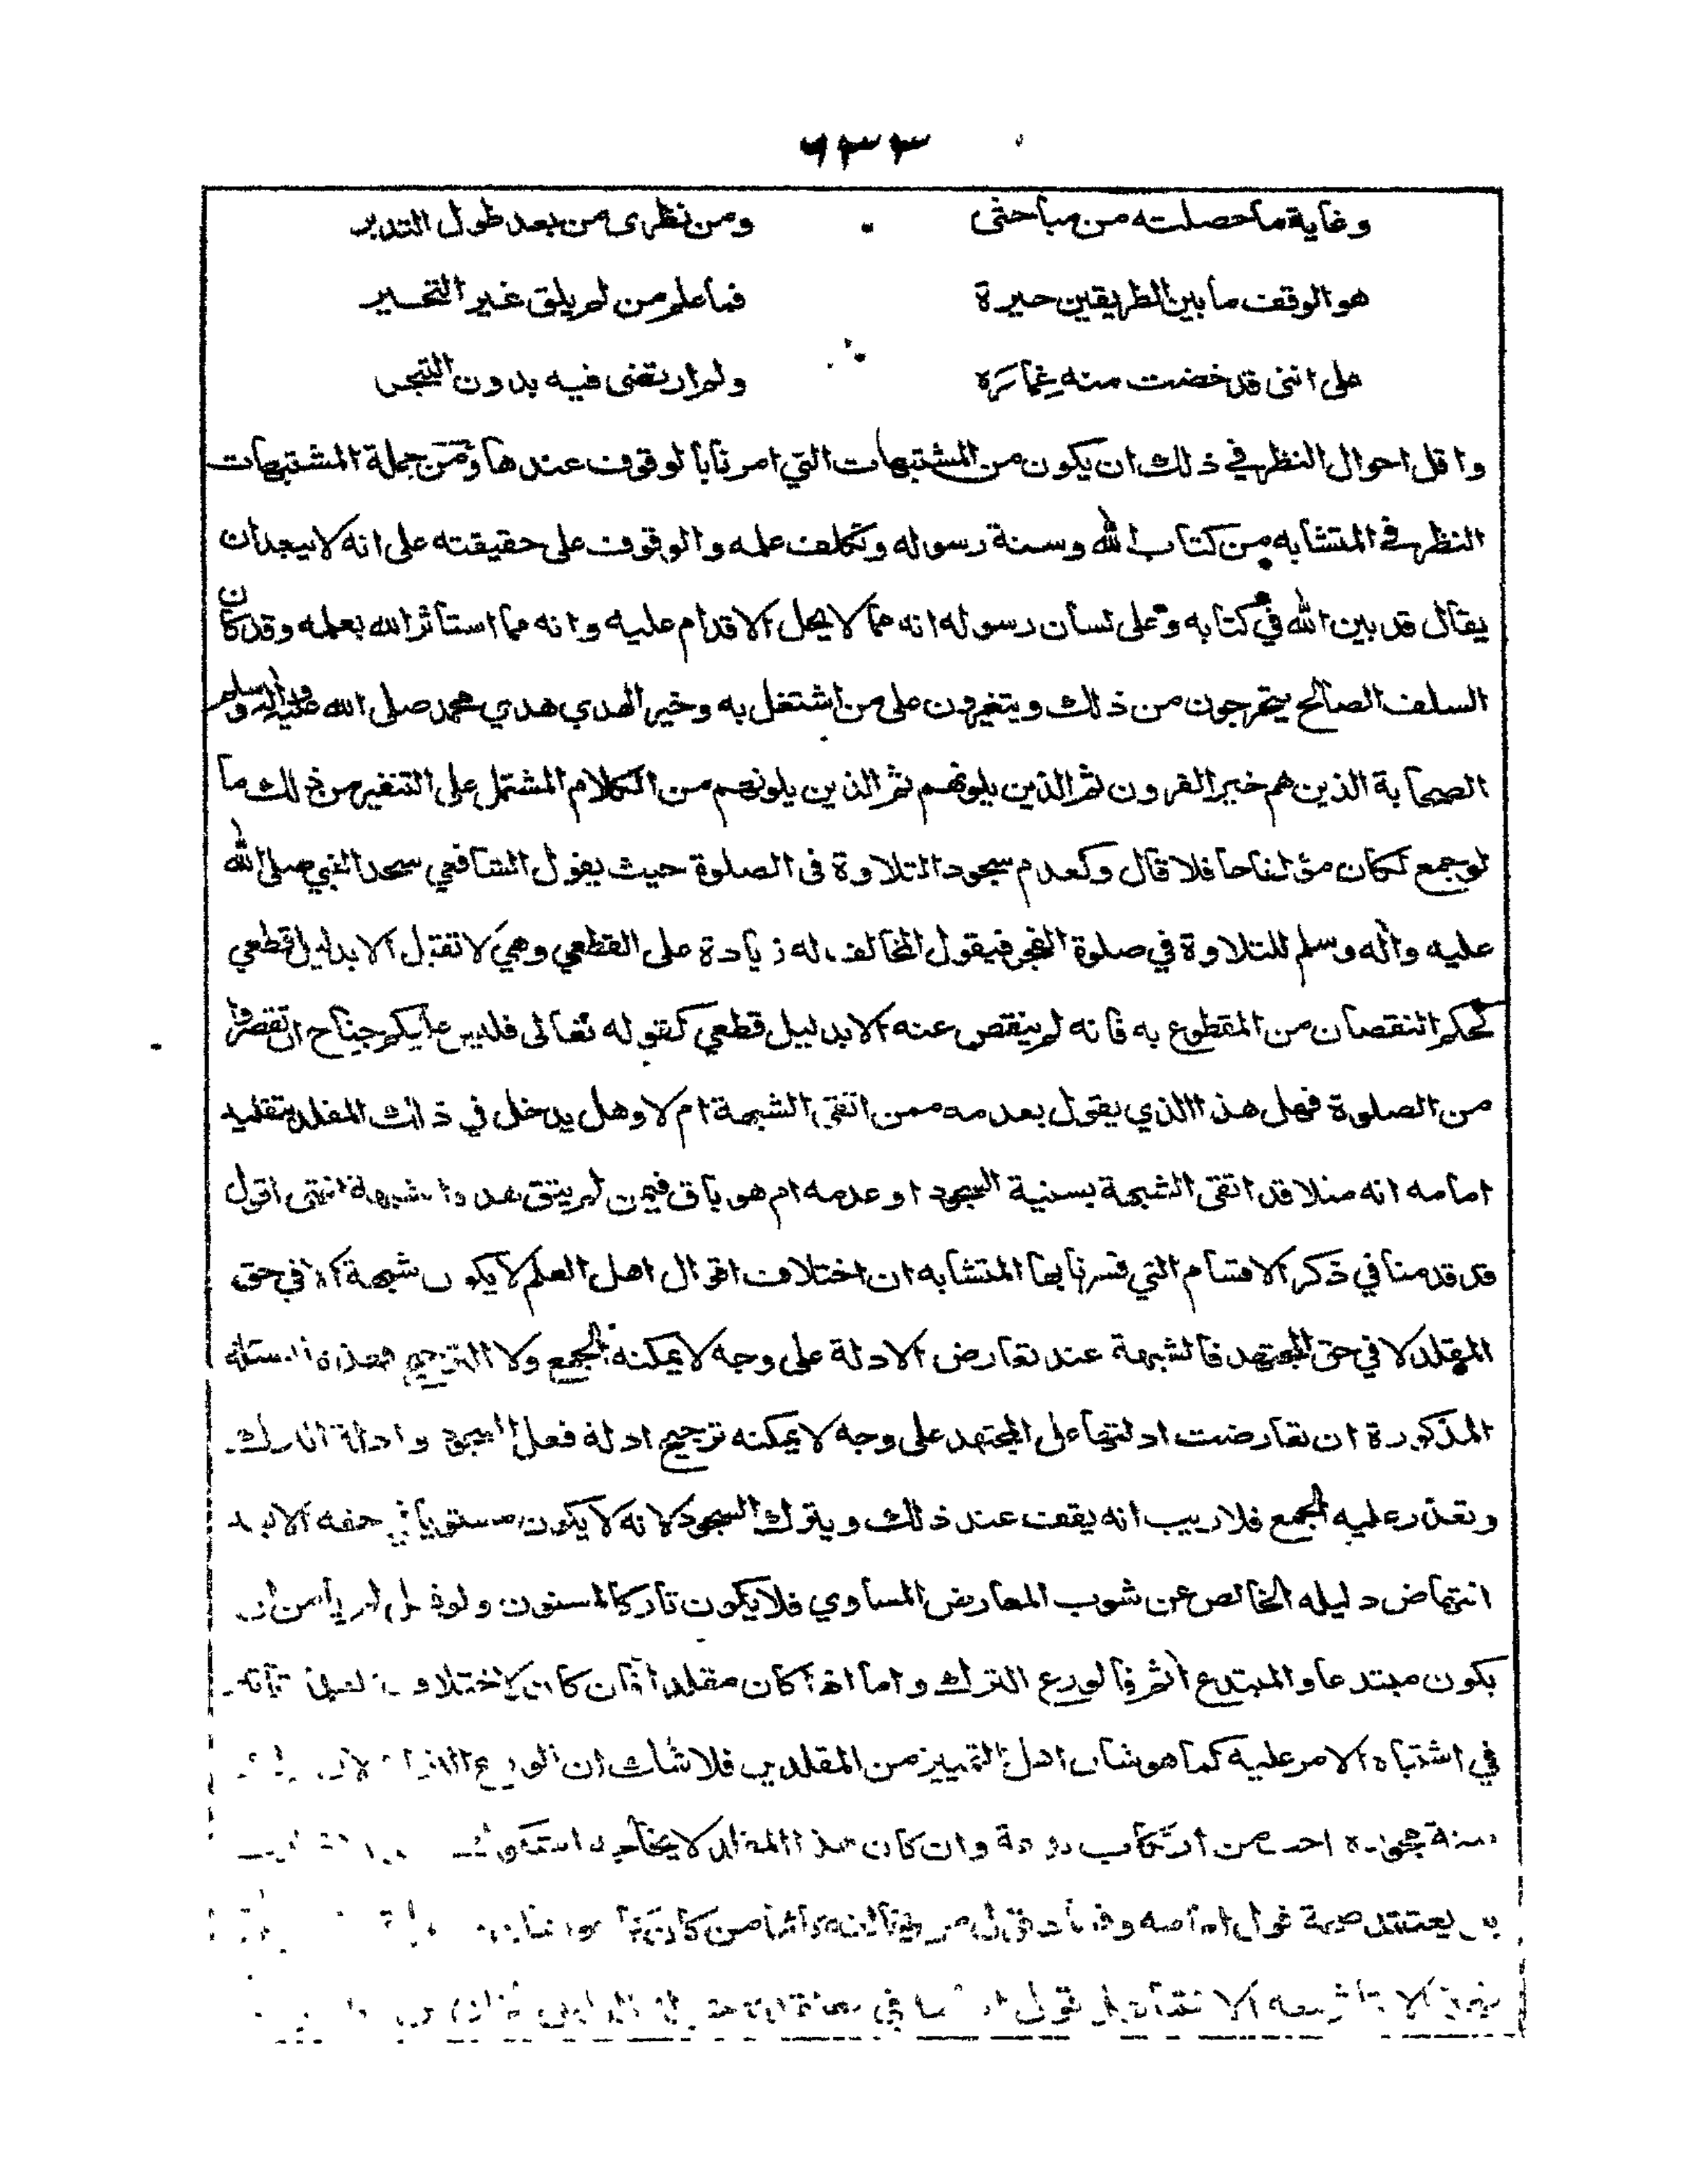 ٦٣٣
وغاية ما حصلته من مباحثى ومن نظرى من بعد طول التدبر
هو الوقف ما بين الطريقين حيرة فما علم من لم يلق غير التحير
على اننى قد خضت منه غماره ولم ارتضى فيه بدون التبحر
واقل احوال النظر في ذلك ان يكون من المشتبهات التي امرنا بالوقوف عندها ومن جملة المشتبهات
النظر في المتشابه من كتاب الله وسنة رسوله وتكلف علمه والوقوف على حقيقته على انه لا يبعد ان
يقال قد بين الله في كتابه وعلى لسان رسوله انه مما لا يحل الاقدام عليه وانه مما استأثر الله بعلمه وقد كان
السلف الصالح يتحرجون من ذلك وينفرون على من اشتغل به وخير الهدي هدي محمد صلى الله عليه واله وسلم
الصحابة الذين هم خير القرون ثم الذين يلونهم ثم الذين يلونهم من الكلام المشتمل على التنفير من ذلك ما
لو جمع لكان مؤلفا حافلا قال وكعدم سجود التلاوة فى الصلوة حيث يقول الشافعي سجد النبي صلى الله
عليه واله وسلم للتلاوة في صلوة الفجر فيقول المخالف له زيادة على القطعي وهي لا تقبل الا بدليل قطعي
كحكم النقصان من المقطوع به فانه لم ينقص عنه الا بدليل قطعي كقوله تعالى فليس عليكم جناح ان تقصروا
من الصلوة فهل هذا الذي يقول بعدمه ممن اتقى الشبهة ام لا وهل يدخل في ذلك المقلد بتقليد
امامه انه مثلا قد اتقى الشبهة بسنية السجود او عدمه ام هو باق فيمن لم يتق هذه الشبهة انتهى اقول
قد قدمنا في ذكر الاقسام التي فسرنا بها المتشابه ان اختلاف اقوال اهل العلم لا يكون شبهة الا في حق
المقلد لا في حق المجتهد فالشبهة عند تعارض الادلة على وجه لا يمكنه الجمع ولا الترجيح فهذه المسئلة
المذكورة ان تعارضت ادلتها على المجتهد على وجه لا يمكنه ترجيح ادلة فعل السجود وادلة التارك
وتعذر عليه الجمع فلا ريب انه يقف عند ذلك ويترك السجود لانه لا يكون مستويا في حقه الا بعد
انتهاض دليله الخالص عن شوب المعارض المساوي فلا يكون تاركا لمسنون ولو فعل لم يأمن ان
يكون مبتدعا والمبتدع اثم فالورع الترك واما اذا كان مقلدا فان كان لاختلاف العلماء تأثير
في اشتباه الامر عليه كما هو شان اهل التمييز من المقلدين فلا شك ان الورع
احد من ارتكاب بدعة وان كان هذا المقلد لا يخالجه
بل يعتقد صحة قول امامه وفساد قول من يخالفه كائنا من كان
قول في